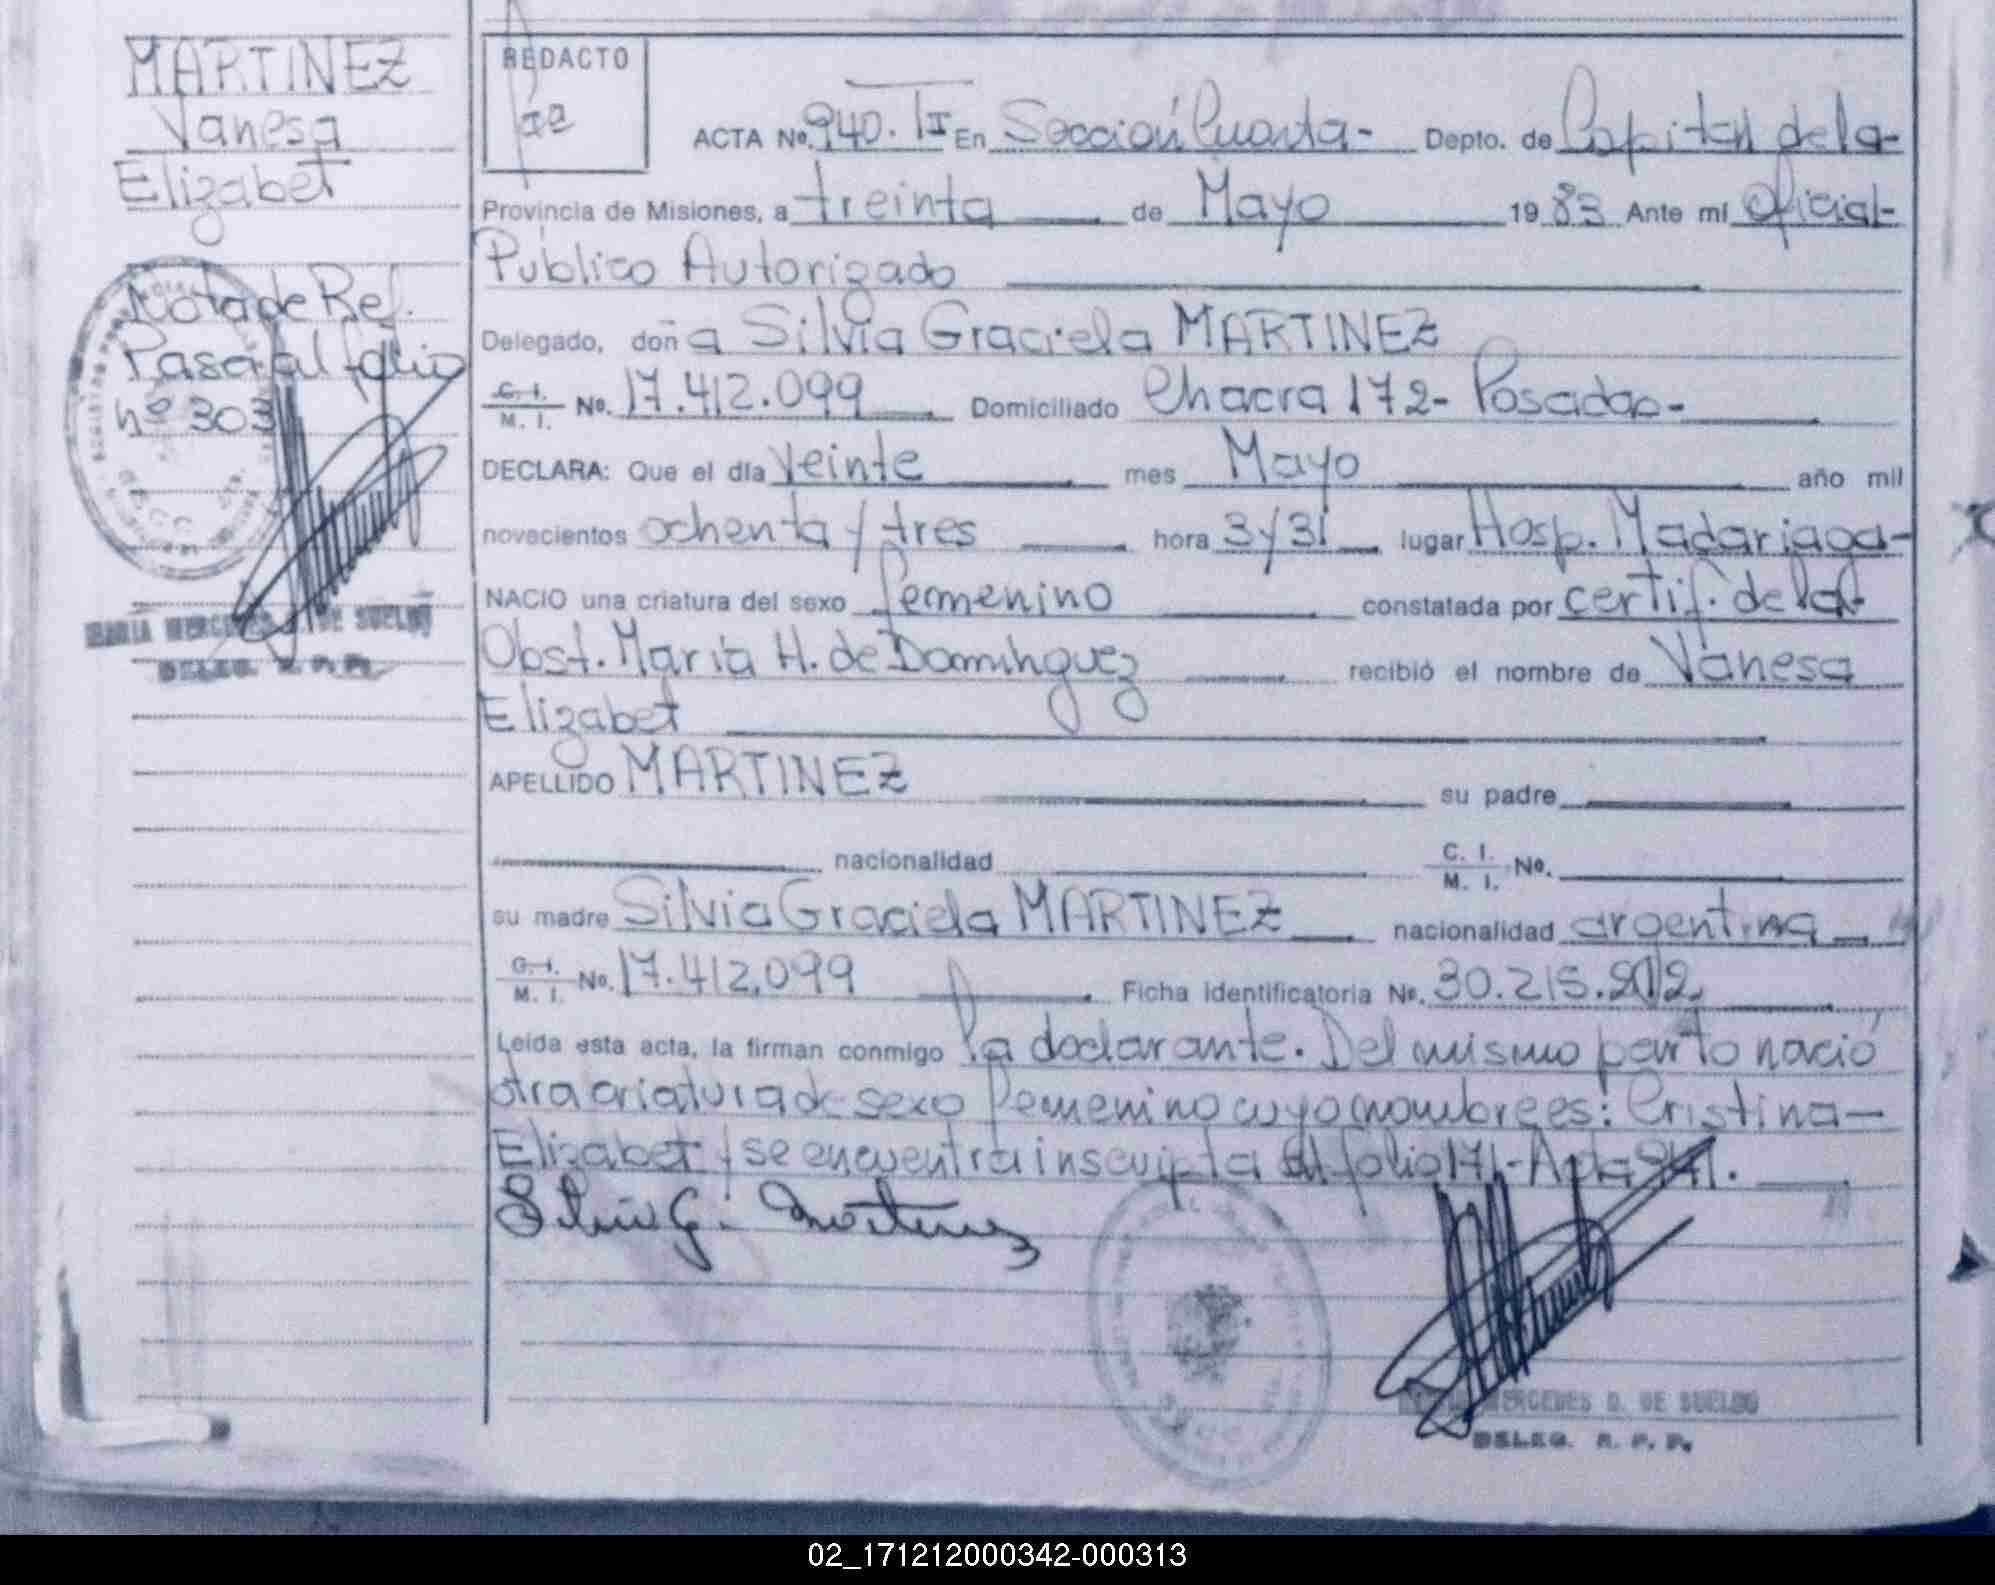 MARTINEZ
Vanesa
Elizabet
Nota de Ref.
Pasa al folio
nº 303
MARIA MERCEDES D. DE SUELDO
DELEG. R. P. P.
REDACTO
ACTA Nº. 940. TI En Sección Cuarta- Depto. de Capital de la-
Provincia de Misiones, a treinta de Mayo 1983 Ante mí Oficial-
Publico Autorizado
Delegado, doña Silvia Graciela MARTINEZ
C. I. / M. I. No. 17.412.099 Domiciliado Chacra 172- Posadas-
DECLARA: Que el día Veinte mes Mayo año mil
novecientos ochenta y tres hora 3 y 31 lugar Hosp. Madariaga-
NACIO una criatura del sexo femenino constatada por certif. de la
Obst. Maria H. de Dominguez recibió el nombre de Vanesa
Elizabet
APELLIDO MARTINEZ su padre
nacionalidad C. I. / M. I. No.
su madre Silvia Graciela MARTINEZ nacionalidad argentina
C. I. / M. I. No. 17.412.099 Ficha identificatoria No. 30.215.202
Leída esta acta, la firman conmigo la declarante. Del mismo parto nació
otra criatura de sexo femenino cuyo nombre es: Cristina-
Elizabet y se encuentra inscripta al folio 171- Acta 941.
Silvia G. Martinez
MERCEDES D. DE SUELDO
DELEG. R. P. P.
02_171212000342-000313